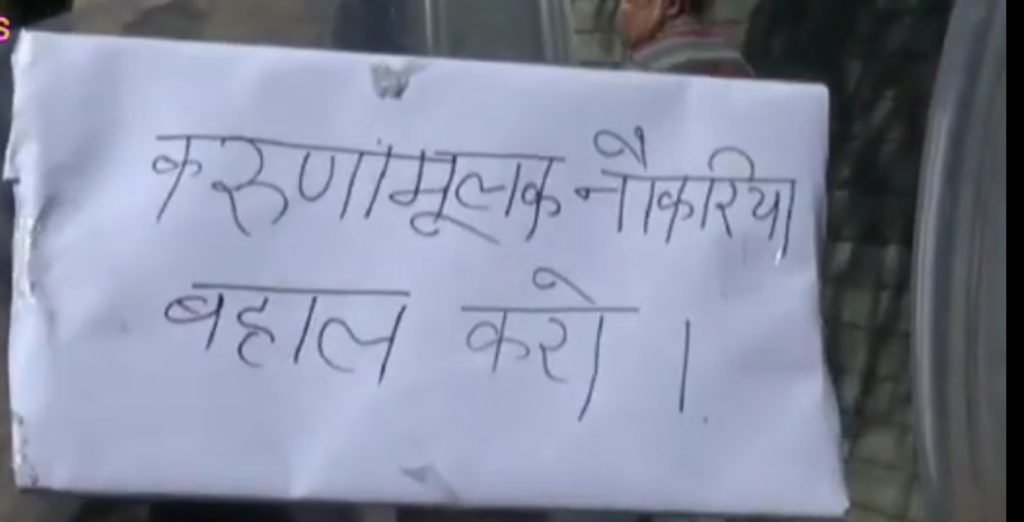 करुणांमूलक नौकरिया
बहाल करो ।